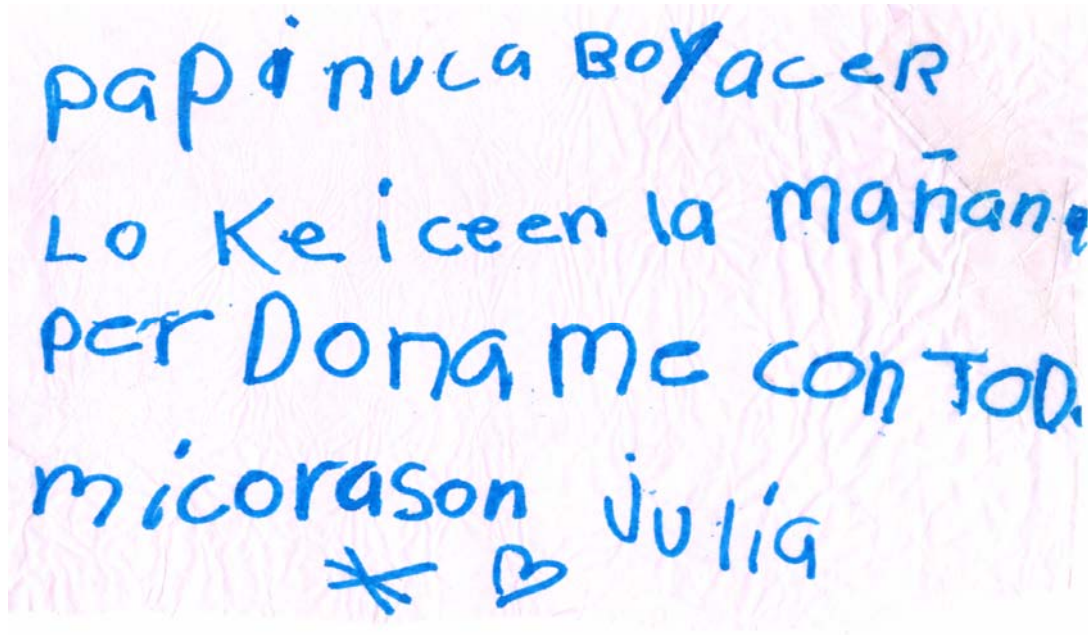 papi nuca BOY acer
Lo Ke iceen la mañana
per Dona me con TOD
micorason julia